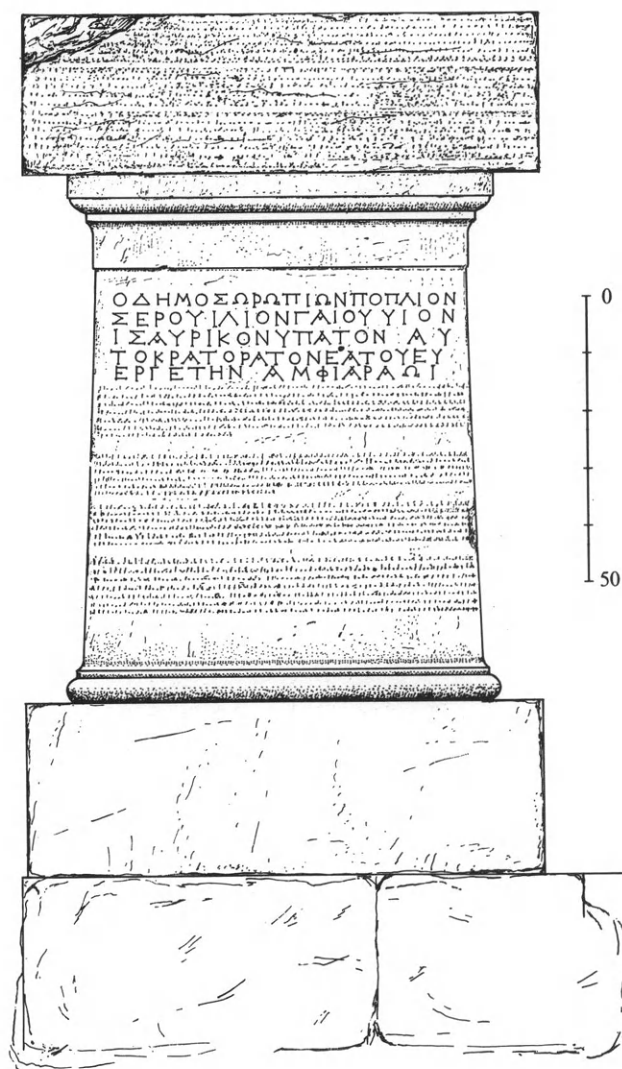 ΟΔΗΜΟΣΩΡΩΠΙΩΝΠΟΠΛΙΟΝ
ΣΕΡΟΥΙΛΙΟΝΓΑΙΟΥΥΙΟΝ
ΙΣΑΥΡΙΚΟΝΥΠΑΤΟΝ ΑΥ
ΤΟΚΡΑΤΟΡΑΤΟΝΕΑΤΟΥΕΥ
ΕΡΓΕΤΗΝ ΑΜΦΙΑΡΑΩΙ
0
50